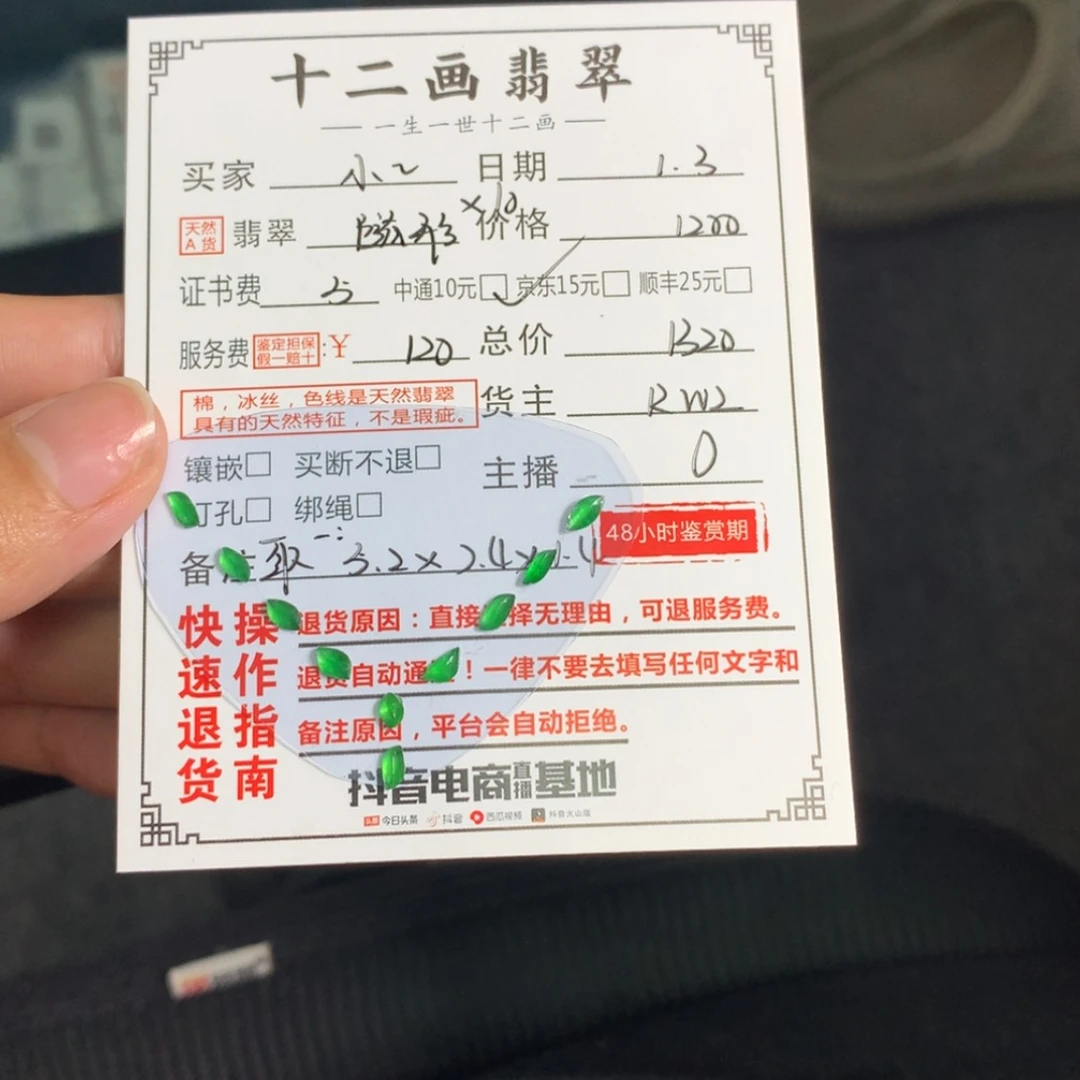 十二画翡翠
一生一世十二画
买家 小二 日期 1.3
天然A货 翡翠 ×10 价格 1200
证书费 5 中通10元□ 京东15元□ 顺丰25元□
服务费 鉴定担保 假一赔十 :¥ 120 总价 1320
棉，冰丝，色线是天然翡翠
具有的天然特征，不是瑕疵。
货主
镶嵌□ 买断不退□
主播 0
打孔□ 绑绳□
48小时鉴赏期
备注 取一: 5.2×2.4×1.4
快速退货操作指南
退货原因：直接选择无理由，可退服务费。
退货自动通过！一律不要去填写任何文字和
备注原因，平台会自动拒绝。
抖音电商直播基地
头条 今日头条 抖音 西瓜视频 抖音火山版